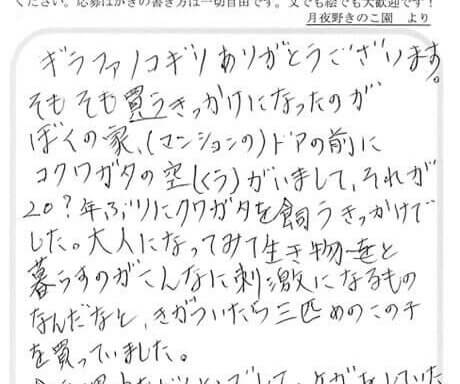 ください。応募はがきの書き方は一切自由です。文でも絵でも大歓迎です!
月夜野きのこ園 より
ギラファノコギリありがとうございます。
そもそも買うきっかけになったのが
ぼくの家、(マンションの)ドアの前に
コクワガタの空(くう)がいまして、それが
20?年ぶりにクワガタを飼うきっかけで
した。大人になってみて生き物と
暮らすのがこんなに刺激になるもの
なんだなと、きがついたら三匹めのこの子
を買っていました。